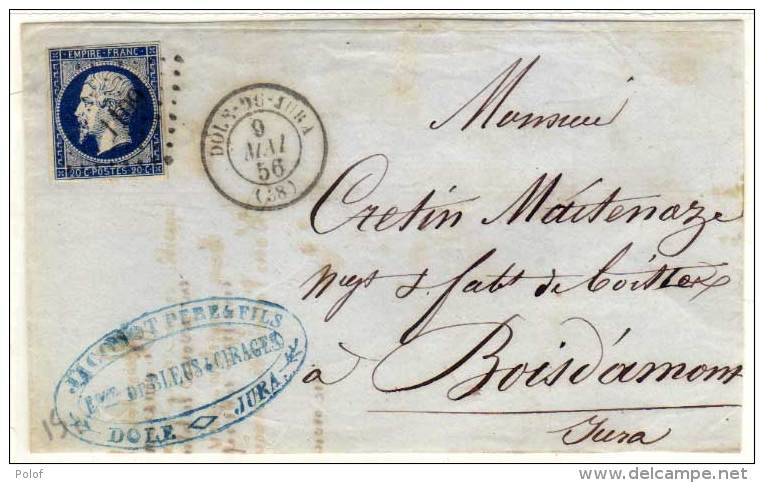 EMPIRE FRANC
20 C. POSTES 20 C.
DOLE-DU-JURA
9
MAI
56
(38)
Monsieur
Cretin Maitenaze
Negt & fabt de boittes
à Boisdamont
Jura
PERE & FILS
DE BLEUS & CIRAGES
DOLE JURA
Polof
delcampe.net